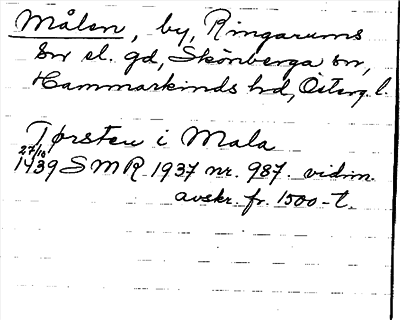 Målen, by, Ringarums
sn el. gd, Skönberga sn,
Hammarkinds hd, Österg. l.
Torsten i Mala
27/10
1439 SMR 1937 nr. 987. vidim.
avskr. fr. 1500-t.